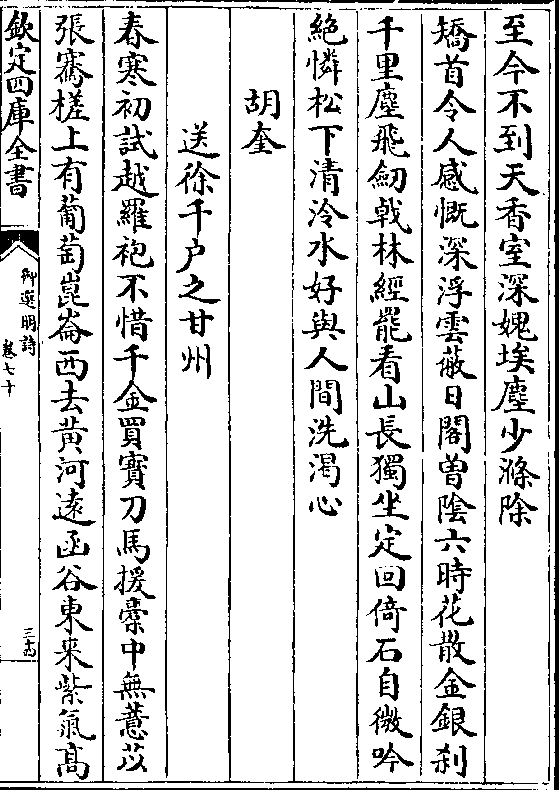 至今不到天香室深媿埃塵少滌除
矯首令人感慨深浮雲蔽日閣曽陰六時花散金銀刹
千里塵飛劒㦸林經罷看山長獨坐定回倚石自微吟
絶憐松下清泠水好與人間洗渇心
胡奎
送徐千户之甘州
春寒初試越羅袍不惜千金買寳刀馬援橐中無薏苡
張騫槎上有葡萄崑崙西去黃河逺函谷東来紫氣高
欽定四庫全書
御選明詩
卷七十